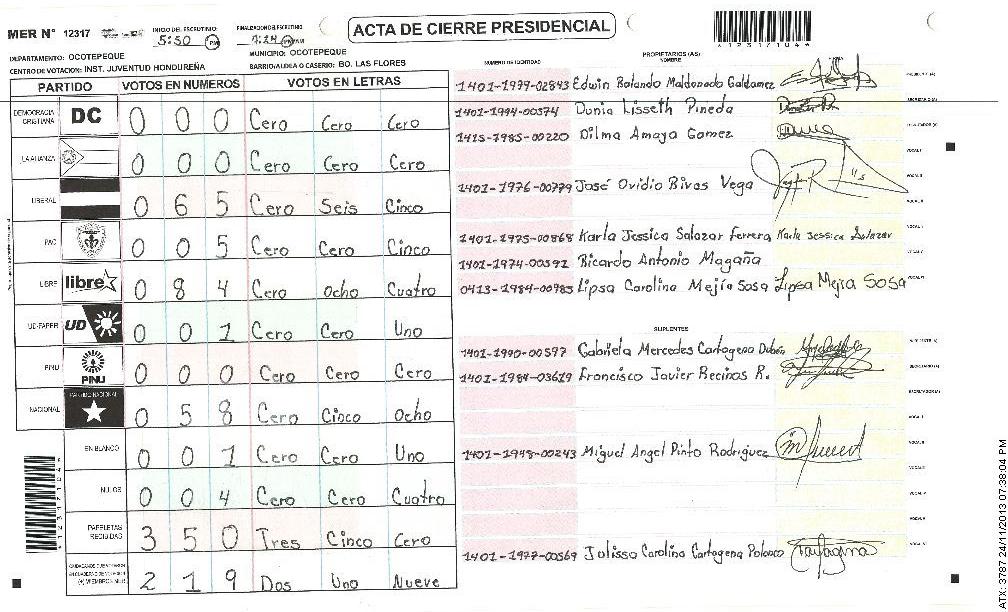 MER N° 12317
INICIO DEL ESCRUTINIO: 5:50 PM
FINALIZACION DEL ESCRUTINIO
ACTA DE CIERRE PRESIDENCIAL
DEPARTAMENTO: OCOTEPEQUE
MUNICIPIO: OCOTEPEQUE
CENTRO DE VOTACION: INST. JUVENTUD HONDUREÑA
BARRIO/ALDEA O CASERIO: BO. LAS FLORES
PARTIDO VOTOS EN NUMEROS VOTOS EN LETRAS
DEMOCRACIA CRISTIANA DC 0 0 0 Cero Cero Cero
LA ALIANZA 0 0 0 Cero Cero Cero
LIBERAL 0 6 5 Cero Seis Cinco
PAC 0 0 5 Cero Cero Cinco
LIBRE libre 0 8 4 Cero Ocho Cuatro
UD-FAPER UD 0 0 1 Cero Cero Uno
PINU PINU 0 0 0 Cero Cero Cero
NACIONAL PARTIDO NACIONAL 0 5 8 Cero Cinco Ocho
EN BLANCO 0 0 1 Cero Cero Uno
NULOS 0 0 4 Cero Cero Cuatro
PAPELETAS RECIBIDAS 3 5 0 Tres Cinco Cero
2 1 9 Dos Uno Nueve
NUMERO DE IDENTIDAD
PROPIETARIOS (AS)
NOMBRE
1401-1977-02843 Edwin Rolando Maldonado Galdamez
1401-1994-00374 Dunia Lisseth Pineda
1415-1985-00220 Dilma Amaya Gomez
1401-1976-00779 José Ovidio Rivas Vega
1401-1975-00868 Karla Jessica Salazar Ferrera Karla Jessica Salazar
1401-1974-00592 Ricardo Antonio Magaña
0413-1984-00985 Lipsa Carolina Mejía Sosa Lipsa Mejia Sosa
SUPLENTES
1401-1990-00597 Gabriela Mercedes Cartagena Dubón
1401-1984-03619 Francisco Javier Recinos R.
1401-1948-00243 Miguel Angel Pinto Rodriguez
1401-1977-00569 Julissa Carolina Cartagena Polanco
ATX: 3787 24/11/2013 07:38:04 PM